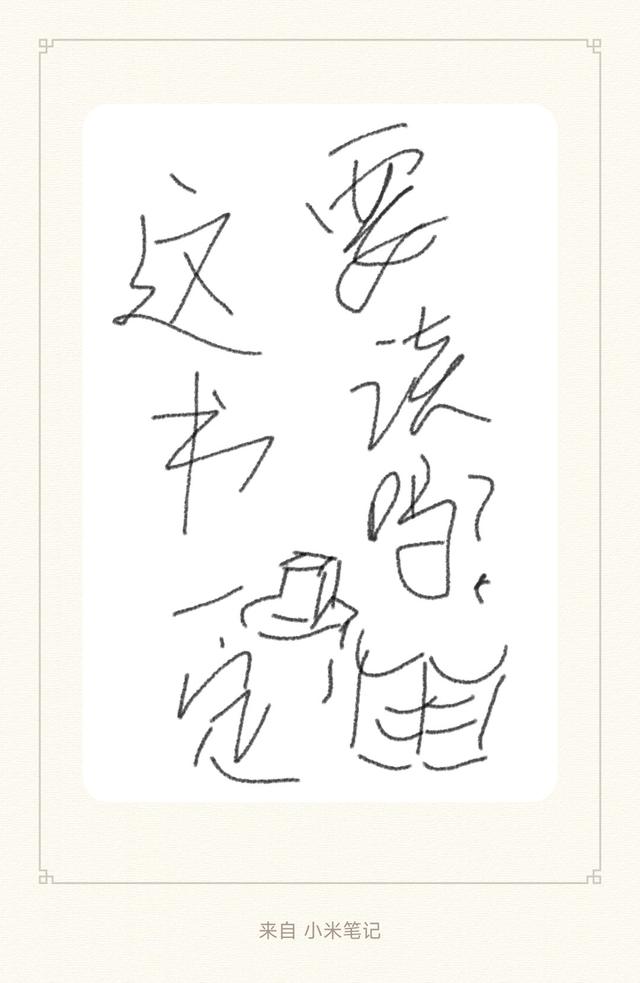 这书一定
要读吗?
来自 小米笔记